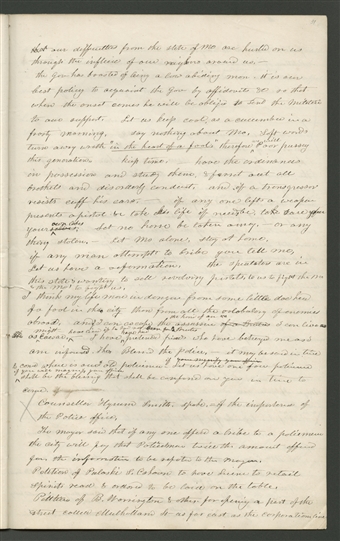 that our difficulties from the state of Mo. are hurled on us
through the influence of our neighbors around us.—
The Gov. has boasted of being a law abiding man. it is our
best policy to acquaint the Gov. by affidavits &c. so that
when the onset comes he will be obliged to send the militia
to our support. Let us keep cool, as a cucumber in a
frosty morning. say nothing about Mo. soft words
turn away wrath in the heart of a fool. therefore we will Poor pussy
this generation keep time. have the ordinances
in possession and study them, & ferret out all
brothels and disorderly conduct. and if a transgressor
resists cuff his ears. — if any one lift a weapon
presents a pistol &c take his life if needs be, take care of
your own lives. Let no horse be taken away.— or any
thing stolen. Let Mo alone, stay at home.
if any man attempt to bribe you tell me.
Let us have a reformation. the speculators are in
this state wanting to sell revolving pistols to us to fight the Mo
& the Mo. to fight us.
I think my life more in danger from some little dough head
of a fool in this city than from all the enemies
abroad. and I can escape the assassin I can live as
Cæsar. I have pretended friends who have betrayed me as I
am informed. Blessed the Police. it may be said in time
to come where are the old policemen. Let us have one of our policemen
shall be the blessing that shall be conferred on you in time to
come
Councellor Hyrum Smith. spoke. of the importance of
the Police office.
The mayor said that if any one offers a bribe to a policeman
the city will pay that Policeman twice the amount offered
for the information to be reported to the mayor.
Petition of Pulaski S. Cahoon to have license to retail
spirits read & ordered to be laid on the table.
Petition of B. Warrington & others for opening a part of the
street called Mulholland st as far east as the corporation line